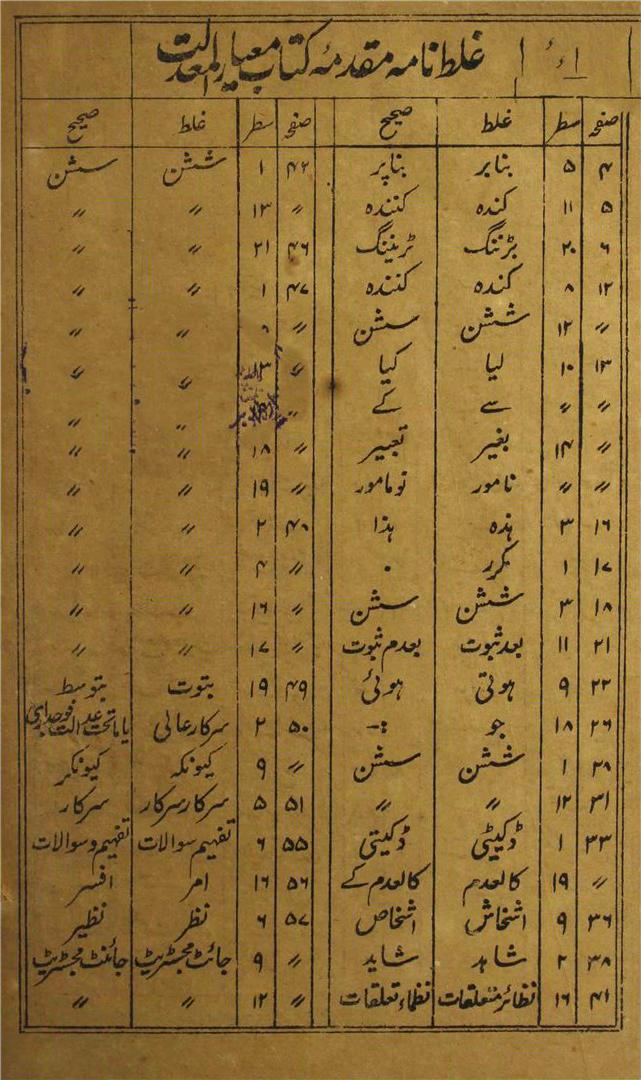 غلط نامہ مقدمۂ کتاب معیار المعدلت
صفحہ سطر غلط صحیح صفحہ سطر غلط صحیح
۴ ۵ بنابر بناپر ۴۲ ۱ ششن سشن
۵ ۱۱ کندہ کنندہ 〃 ۱۳ 〃 〃
۶ ۲۰ ٹرننگ ٹریننگ ۴۶ ۲۱ 〃 〃
۱۲ ۸ کندہ کنندہ ۴۷ ۱ 〃 〃
〃 ۱۲ ششن سشن 〃 〃 〃
۱۳ ۱۰ لیا کیا 〃 ۱۳ 〃 〃
〃 〃 سے کے 〃 〃 〃
〃 ۱۴ بغیر تعبیر 〃 ۱۸ 〃 〃
〃 〃 نامور نومامور 〃 ۱۹ 〃 〃
۱۶ ۳ ہذہ ہذا ۴۸ ۲ 〃 〃
۱۷ ۱ مکرر ۰ 〃 ۴ 〃 〃
۱۸ ۳ ششن سشن 〃 ۱۶ 〃 〃
۲۱ ۱۱ بعد ثبوت بعدم ثبوت 〃 ۱۷ 〃 〃
۲۲ ۹ ہوتی ہوئی ۴۹ ۱۹ بتوت بتوسط
۲۶ ۱۸ جو :- ۵۰ ۲ سرکار عالی یا ماتحت عدالت فوجداری
۲۸ ۱ ششن سشن 〃 ۹ کیونکہ کیونکر
۳۱ ۱۲ 〃 〃 ۵۱ ۵ سرکار سرکار سرکار
۳۳ ۱ ڈکیٹی ڈکیتی ۵۵ ۶ تفہیم سوالات تفہیم و سوالات
〃 ۱۹ کالعدم کالعدم کے ۵۶ ۱۶ امر افسر
۳۶ ۹ اشخاش اشخاص ۵۷ ۶ نظر نظیر
۳۸ ۲ شاہد شاید 〃 ۹ جائٹ مجسٹریٹ جائنٹ مجسٹریٹ
۴۱ ۱۶ نظائر متعلقات نظماء تعلقات 〃 ۱۲ 〃 〃